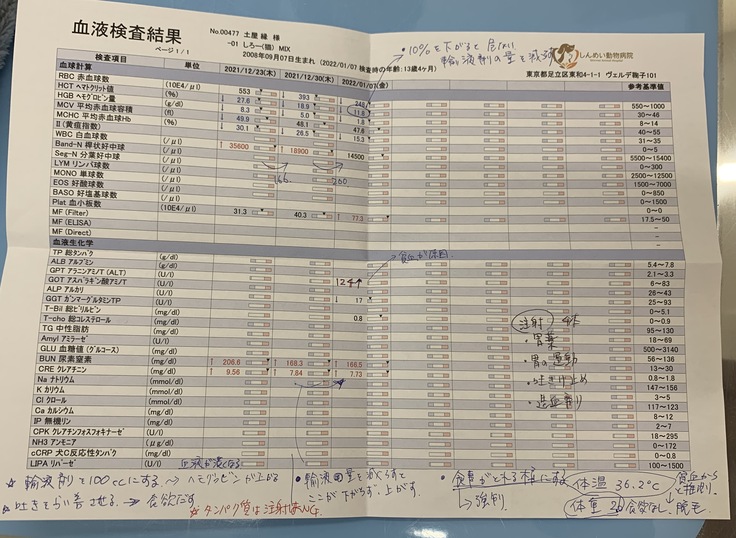 血液検査結果
ページ 1 / 1
No.00477 土屋 縁 様
-01 しろー(猫) MIX
2008年09月07日生まれ (2022/01/07 検査時の年齢:13歳4ヶ月)
・10%を下がると危ない
輸液剤の量を減らす
しんめい動物病院
東京都足立区東和4-1-1 ヴェルデ鞠子101
検査項目 単位 2021/12/23(木) 2021/12/30(木) 2022/01/07(金) 参考基準値
血球計算
RBC 赤血球数 (10E4/μl) 553 393 248 550～1000
HCT ヘマトクリット値 (%) 27.6 18.9 11.8 30～46
HGB ヘモグロビン量 8.3 5.0 1.8 8～14
MCV 平均赤血球容積 (fl) 49.9 48.1 47.6 40～55
MCHC 平均赤血球Hb (%) 30.1 26.5 15.3 31～35
II (黄疸指数) 0～5
WBC 白血球数 (/μl) 35600 18900 14500 5500～15400
Band-N 桿状好中球 (/μl) 0～300
Seg-N 分葉好中球 (/μl) 2500～12500
LYM リンパ球数 (/μl) 1500～7000
MONO 単球数 (/μl) 0～850
EOS 好酸球数 (/μl) 0～1500
BASO 好塩基球数 (/μl) 0～0
Plat 血小板数 (10E4/μl) 31.3 40.3 77.3 17.5～50
MF (Filter) -
MF (ELISA) -
MF (Direct) -
血液生化学
TP 総タンパク (g/dl) 5.4～7.8
ALB アルブミン (g/dl) 2.1～3.3
GPT アラニンアミノT (ALT) (U/l) 124↑ 6～83
貧血が原因
GOT アスパラギン酸アミノT (U/l) 26～43
ALP アルカリ (U/l) 17 25～93
GGT ガンマーグルタミンTP (U/l) 0～5.1
T-Bil 総ビリルビン (mg/dl) 0.8 0～0.9
T-cho 総コレステロール (mg/dl) 95～130
TG 中性脂肪 (mg/dl) 18～69
Amyl アミラーゼ (U/l) 500～3140
GLU 血糖値 (グルコース) (mg/dl) 56～136
BUN 尿素窒素 (mg/dl) 206.6 168.3 166.5 13～30
CRE クレアチニン (mg/dl) 9.56 7.84 7.73 0.8～1.8
Na ナトリウム (mmol/dl) 147～156
K カリウム (mmol/dl) 3～5
Cl クロール (mmol/dl) 117～123
Ca カルシウム (mg/dl) 8～12
IP 無機リン (mg/dl) 2～7
CPK クレアチンフォスフォキナーゼ (U/l) 18～295
NH3 アンモニア (μg/dl) 0～172
cCRP 犬C反応性タンパク (mg/dl) 0～0.8
LIPA リパーゼ (U/l) 100～1500
166
260
注射 4本
・胃薬
・胃の運動
・吐き止め
・造血剤
血液が濃くなる
☆ 輸液剤を100ccにする → ヘモグロビンが上がる
☆ 吐きを改善させる → 食欲だす
☆タンパク質は注射はNG。
・輸液回量を減らすと
ここが下がらず、上がる。
・食事がとれる様にする
↳ 強制
体温 36.2℃
体重 食欲なし、脱毛。
貧血から